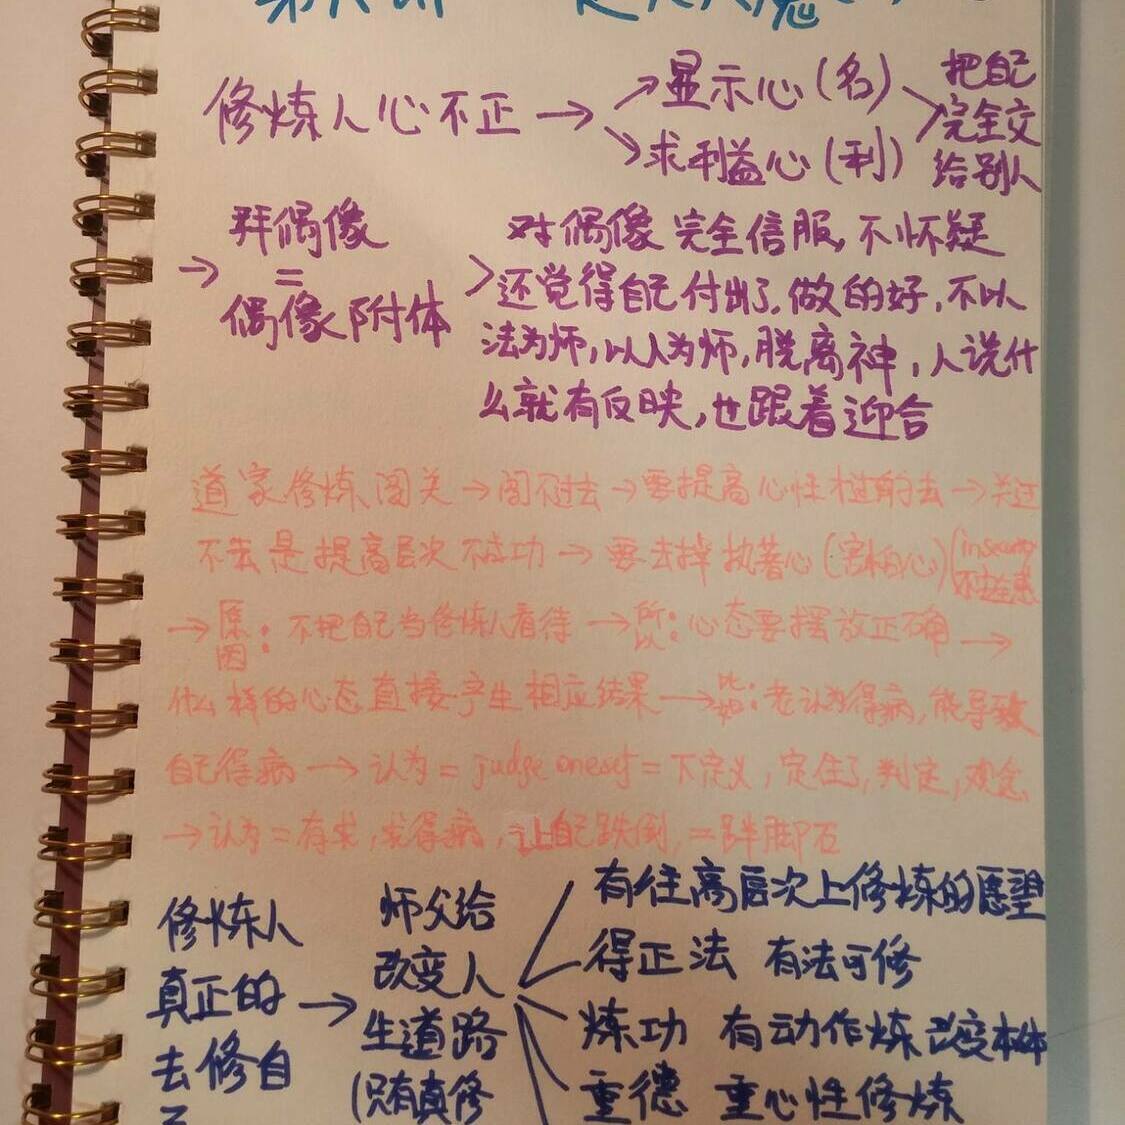 修炼人心不正 → 显示心(名)
求利益心(利)
把自己
完全交
给别人
→ 群偶像
=
偶像附体
对偶像完全信服,不怀疑
还觉得自己付出了,做的好,不以
法为师,以人为师,脱离神,人说什
么就有反映,也跟着迎合
道家修炼闯关→闯不过去→要提高心性才过的去→关过
不去是提高层次不成功→要去掉执著心(害怕心)(insecurity
→原因:不把自己当修炼人看待→所以:心态要摆放正确→
什么样的心态直接产生相应结果→比如:老认为得病,能导致
自己得病→认为=judge oneself=下定义,定住了,判定,观念
→认为=有求,求得病,让自己跌倒,=绊脚石
修炼人
真正的
去修自
师父给
改变人
生道路
(只有真修
有往高层次上修炼的愿望
得正法 有法可修
炼功 有动作炼 改变本体
重德 重心性修炼